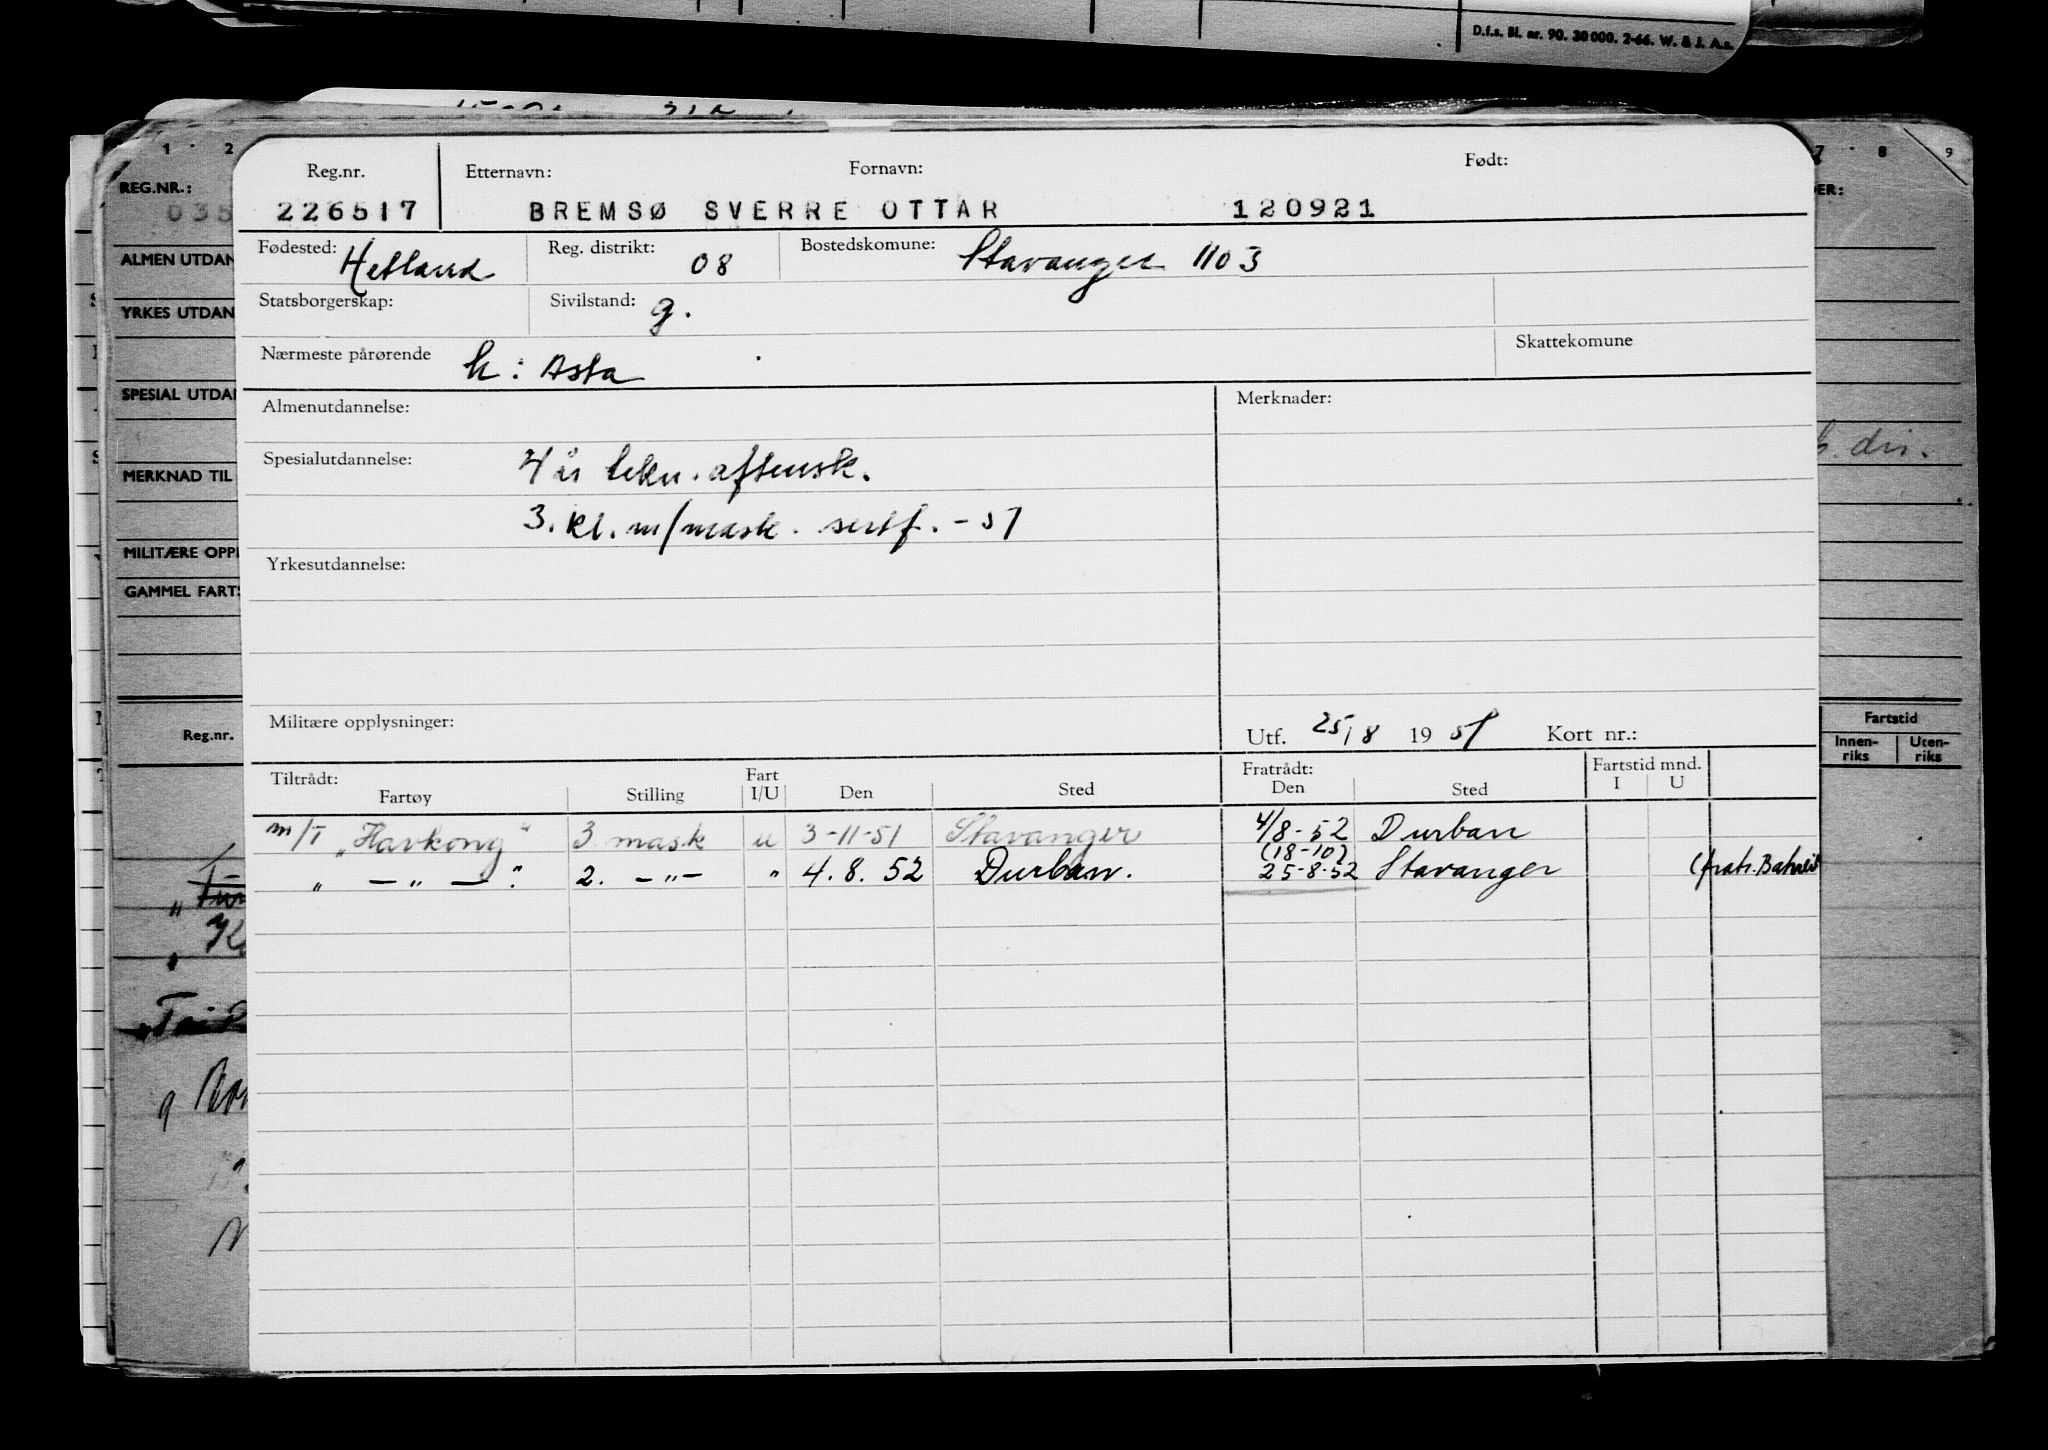 D.f.s. Bl. nr. 90. 30 000. 2-66. W. & J. A.s.
1 · 2 7 · 8 9
REG.NR.: 035
ALMEN UTDAN
YRKES UTDAN
SPESIAL UTDA
MERKNAD TIL
dir.
MILITÆRE OPP
GAMMEL FARTS
Reg.nr. Fartstid
Innen-riks Uten-riks
Reg.nr. Etternavn: Fornavn: Født:
226517 BREMSØ SVERRE OTTAR 120921
Fødested: Hetland Reg. distrikt: 08 Bostedskomune: Stavanger 1103
Statsborgerskap: Sivilstand: g.
Nærmeste pårørende h: Asta Skattekomune
Almenutdannelse: Merknader:
Spesialutdannelse: 4 år tekn. aftensk.
3. kl. m/mask. sertf. - 51
Yrkesutdannelse:
Militære opplysninger: Utf. 25/8 19 51 Kort nr.:
Tiltrådt: Fratrådt: Fartstid mnd.
Fartøy Stilling Fart I/U Den Sted Den Sted I U
m/T "Havkong" 3 mask u 3-11-51 Stavanger 4/8-52 Durban
" — " — ". 2. — " — " 4. 8. 52 Durban. (18-10) 25-8-52 Stavanger (fratr.